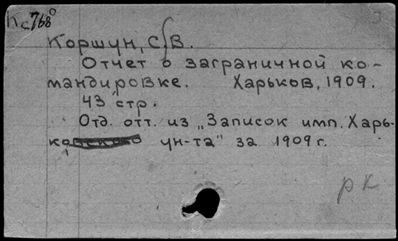 Пс768⁰
Коршун, С. В.
Отчет о заграничной ко-
мандировке. Харьков, 1909.
43 стр.
Отд. отт. из „Записок имп. Харь-
ковского ун-та" за 1909 г.
рк